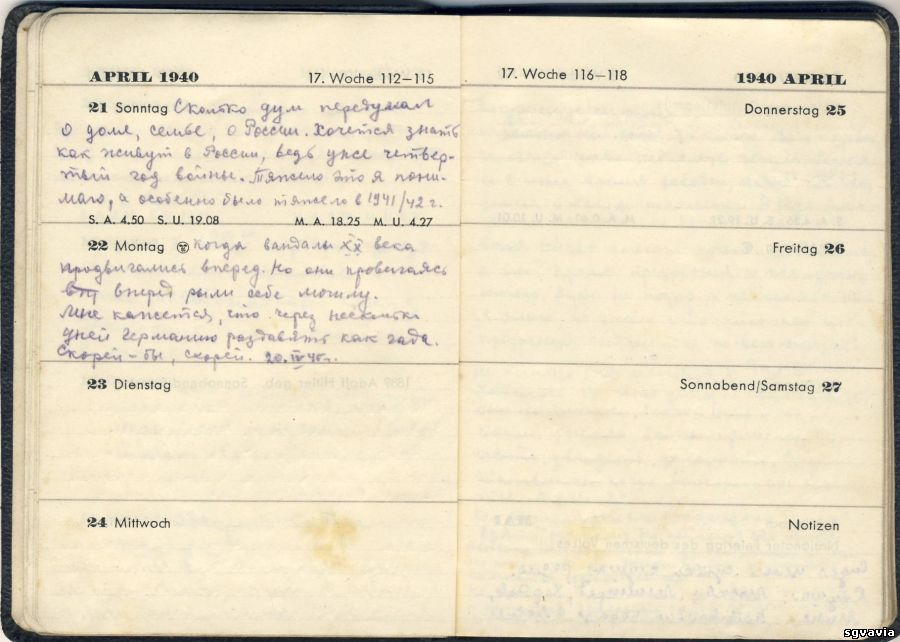 APRIL 1940
17. Woche 112–115
21 Sonntag Сколько дум передумал
о доме, семье, о России. Хочется знать
как живут в России, ведь уже четвер-
тый год войны. Тяжело это я пони-
маю, а особенно было тяжело в 1941/42 г.
S. A. 4.50 S. U. 19.08 M. A. 18.25 M. U. 4.27
22 Montag Когда вандалы XX века
продвигались вперед. Но они
вперед рыли себе могилу.
Мне кажется, что через несколько
дней Германию раздавят как гада.
Скорей-бы, скорей. 20.IV 45г.
23 Dienstag
24 Mittwoch
17. Woche 116–118
1940 APRIL
Donnerstag 25
Freitag 26
Sonnabend/Samstag 27
Notizen
sgvavia